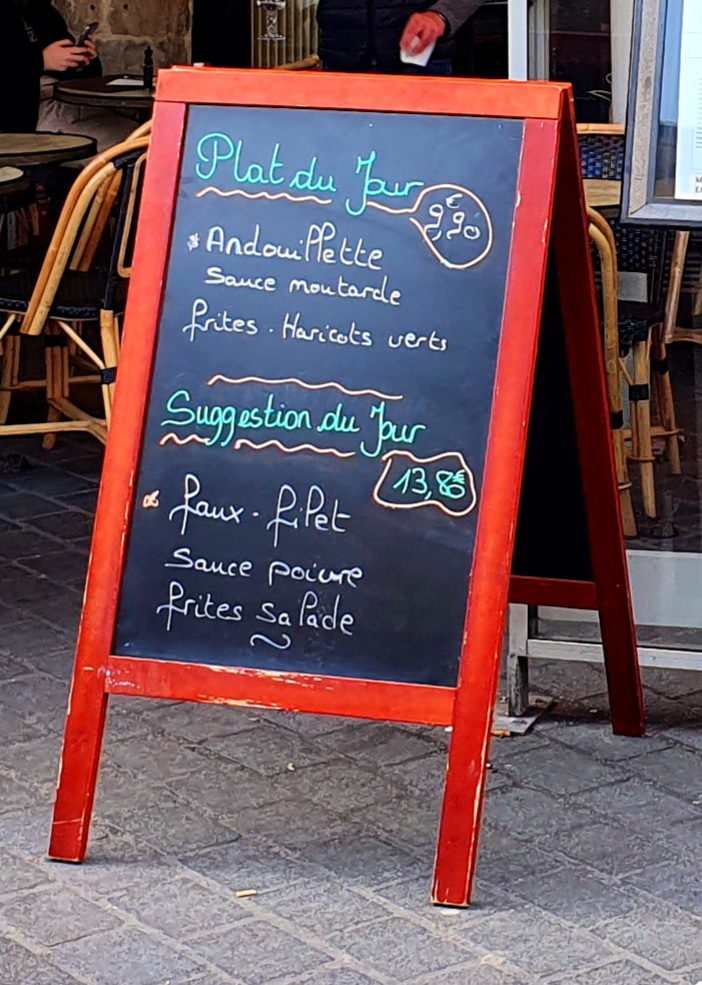 Plat du Jour
9,90€
* Andouillette
Sauce moutarde
frites . Haricots verts
Suggestion du Jour
13,80€
faux - filet
Sauce poivre
frites salade